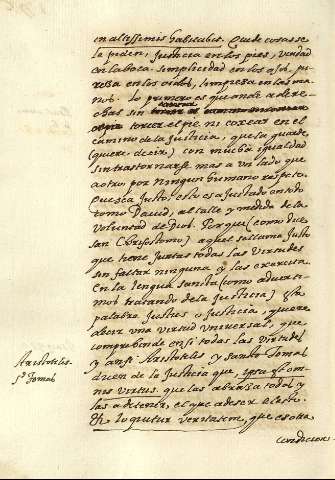 in altissimis habitabit. Que de cosas se
le piden, Justicia en los pies, verdad
en la boca. Simplicidad en los ojos, pu
reza en los oidos, limpieza en las ma
nos. Lo primero es que ande a dere
chas sin
torcer el pie, ni coxear en el
camino de la Justicia, que la guarde
(quiere decir) con mucha igualdad
sin trastornarse mas a un lado que
a otro por ningun humano respeto.
Que sea Justo, esto es ajustado en todo
como David, al talle y medida de la
voluntad de Dios. Porque (como dice
san Chrisostomo) aquel se llama Justo
que tiene juntas todas las virtudes
sin faltar ninguna y las exercita.
En la lengua santa (como advertimos
mos tratando de la Justicia) esta
palabra Justus o Justicia, quiere
decir una virtud universal, que
comprehende en si todas las virtudes
y ansi Aristoteles y santo Tomas
dicen de la Justicia que, ipsa est om
nis virtus. que las abraza todas y
las
Et loquitur veritatem, que es otra
condicion
Aristoteles.
S.to Tomas